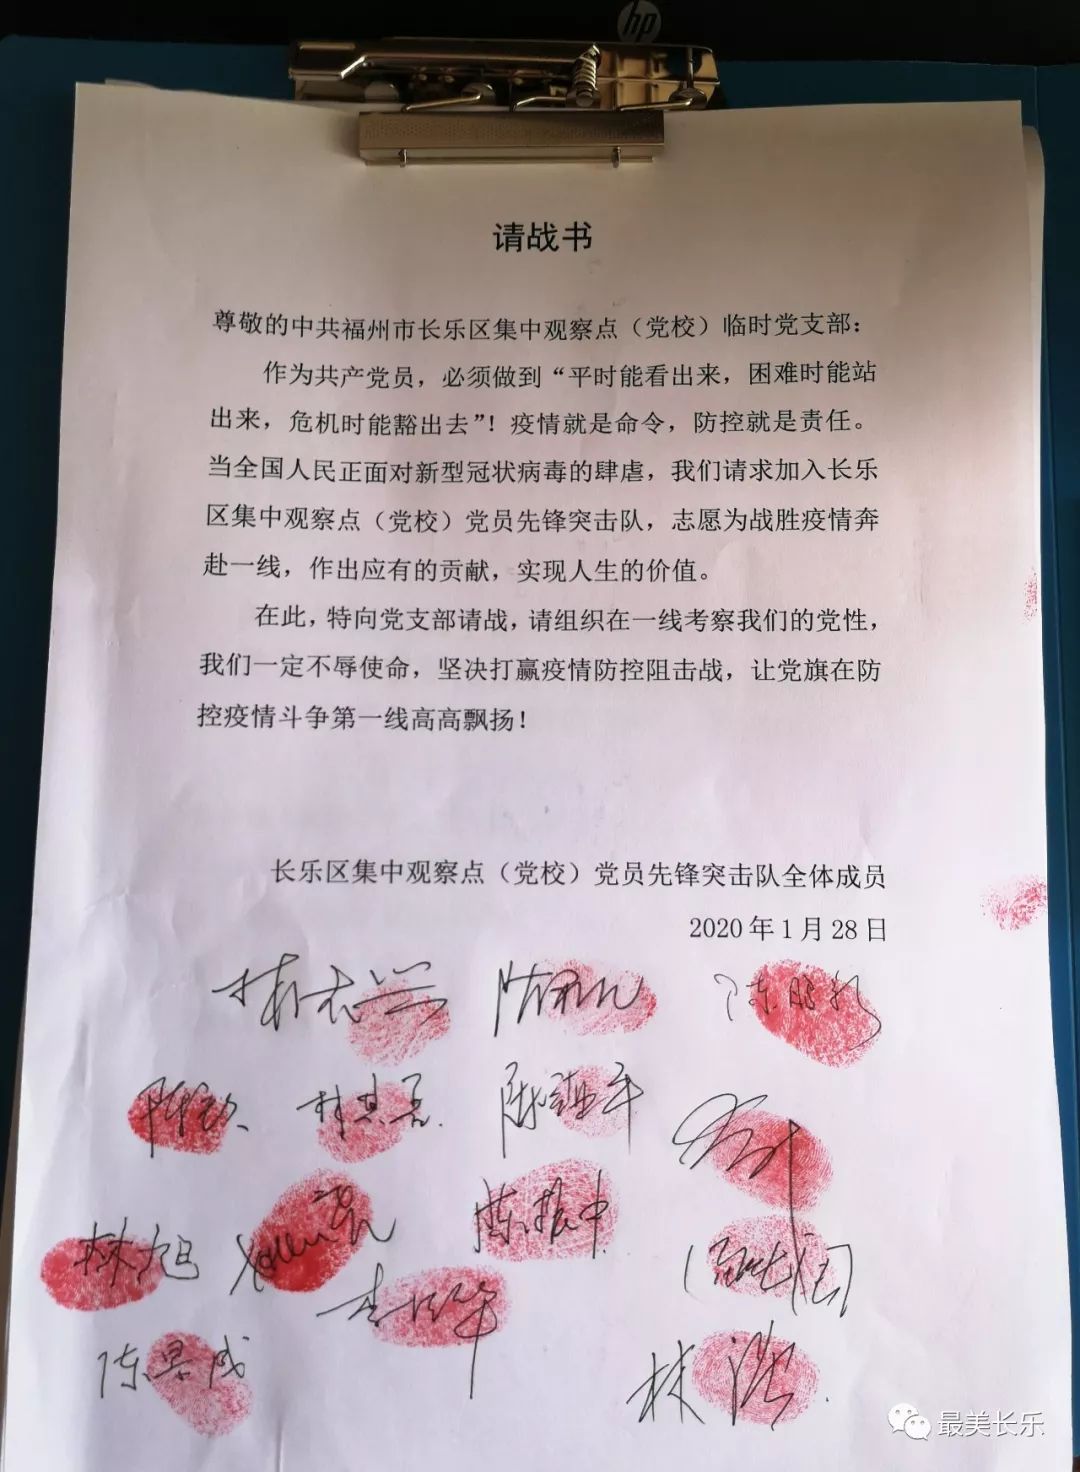 hp
请战书
尊敬的中共福州市长乐区集中观察点（党校）临时党支部：
作为共产党员，必须做到“平时能看出来，困难时能站
出来，危机时能豁出去”！疫情就是命令，防控就是责任。
当全国人民正面对新型冠状病毒的肆虐，我们请求加入长乐
区集中观察点（党校）党员先锋突击队，志愿为战胜疫情奔
赴一线，作出应有的贡献，实现人生的价值。
在此，特向党支部请战，请组织在一线考察我们的党性，
我们一定不辱使命，坚决打赢疫情防控阻击战，让党旗在防
控疫情斗争第一线高高飘扬！
长乐区集中观察点（党校）党员先锋突击队全体成员
2020年1月28日
林旭
陈振中
林浩
最美长乐